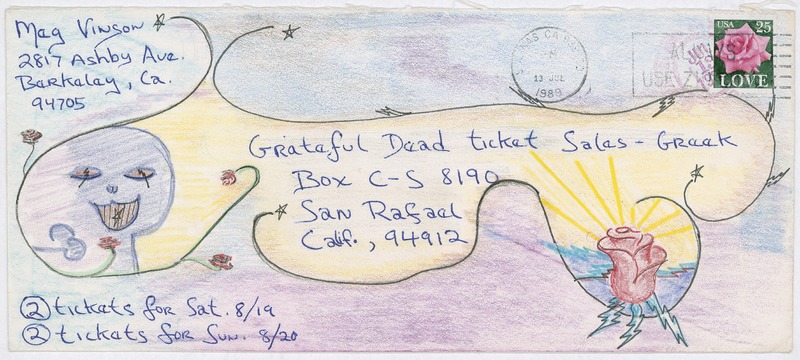 Meg Vinson
2817 Ashby Ave.
Berkeley, Ca.
94705
13 JUL
1989
USA 25
LOVE
Grateful Dead ticket Sales - Greek
Box C-S 8190
San Rafael
Calif., 94912
② tickets for Sat. 8/19
② tickets for Sun. 8/20